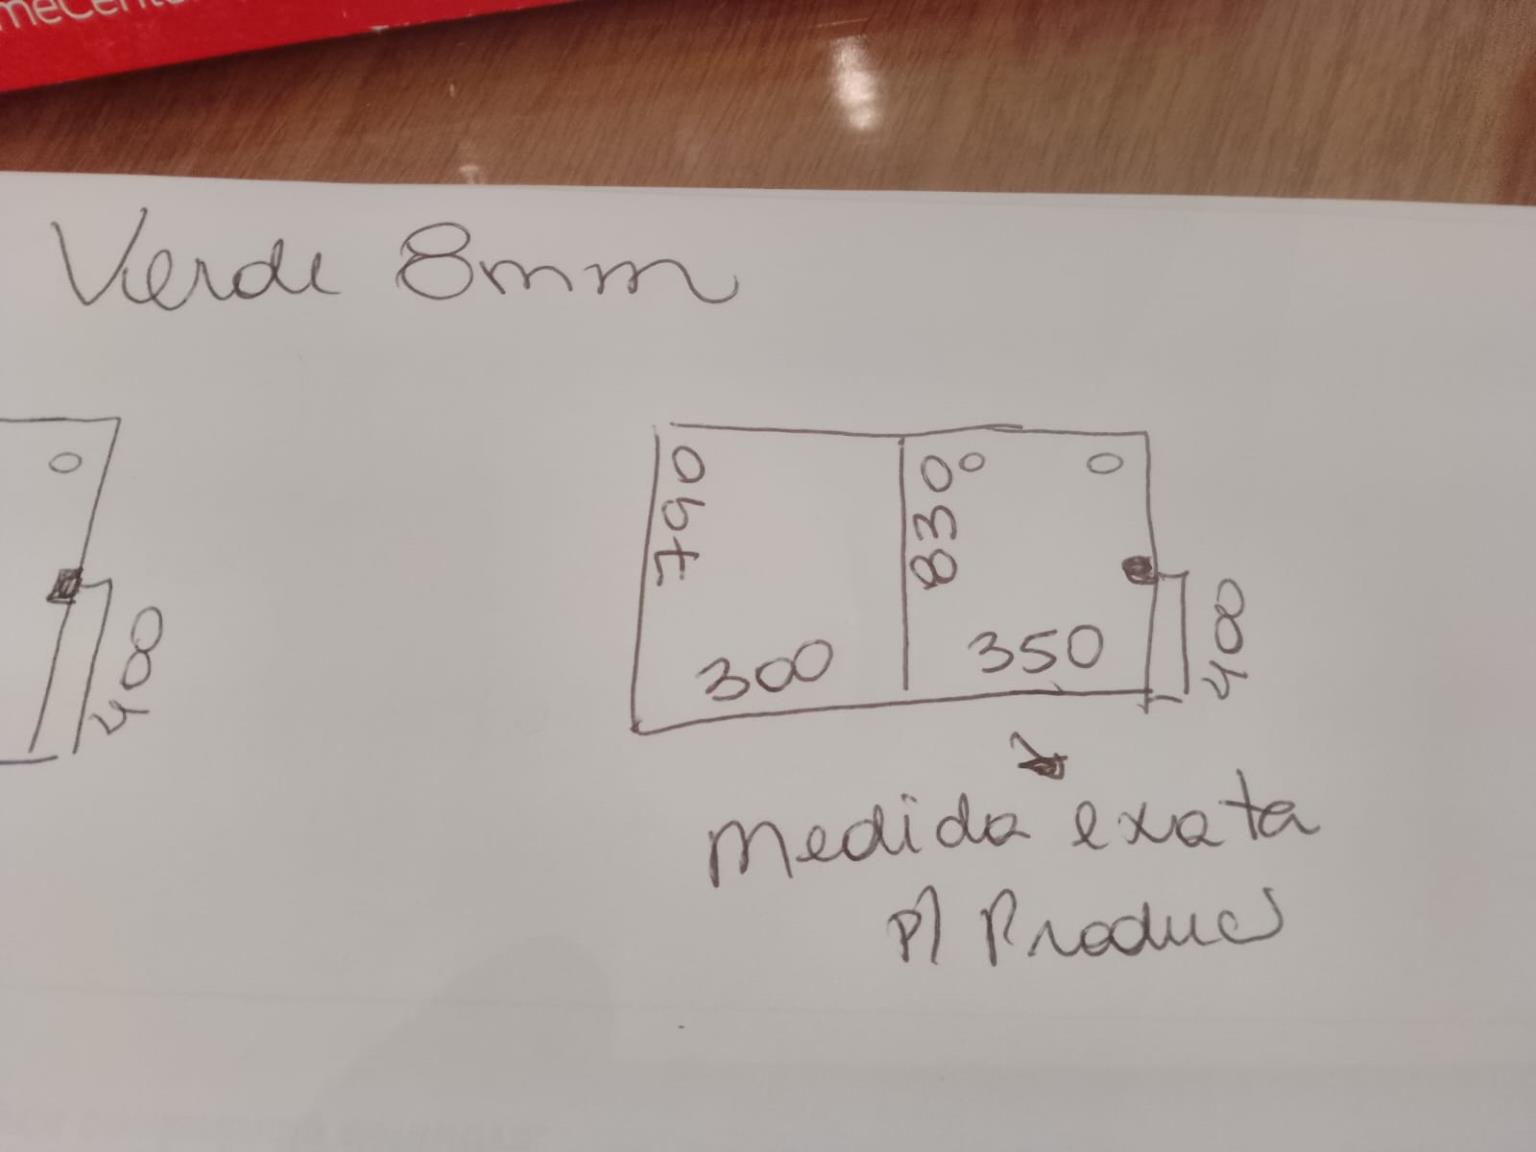 meCenter
Verde 8mm
400
790
300
830
350
400
Medida exata
p/ Produc